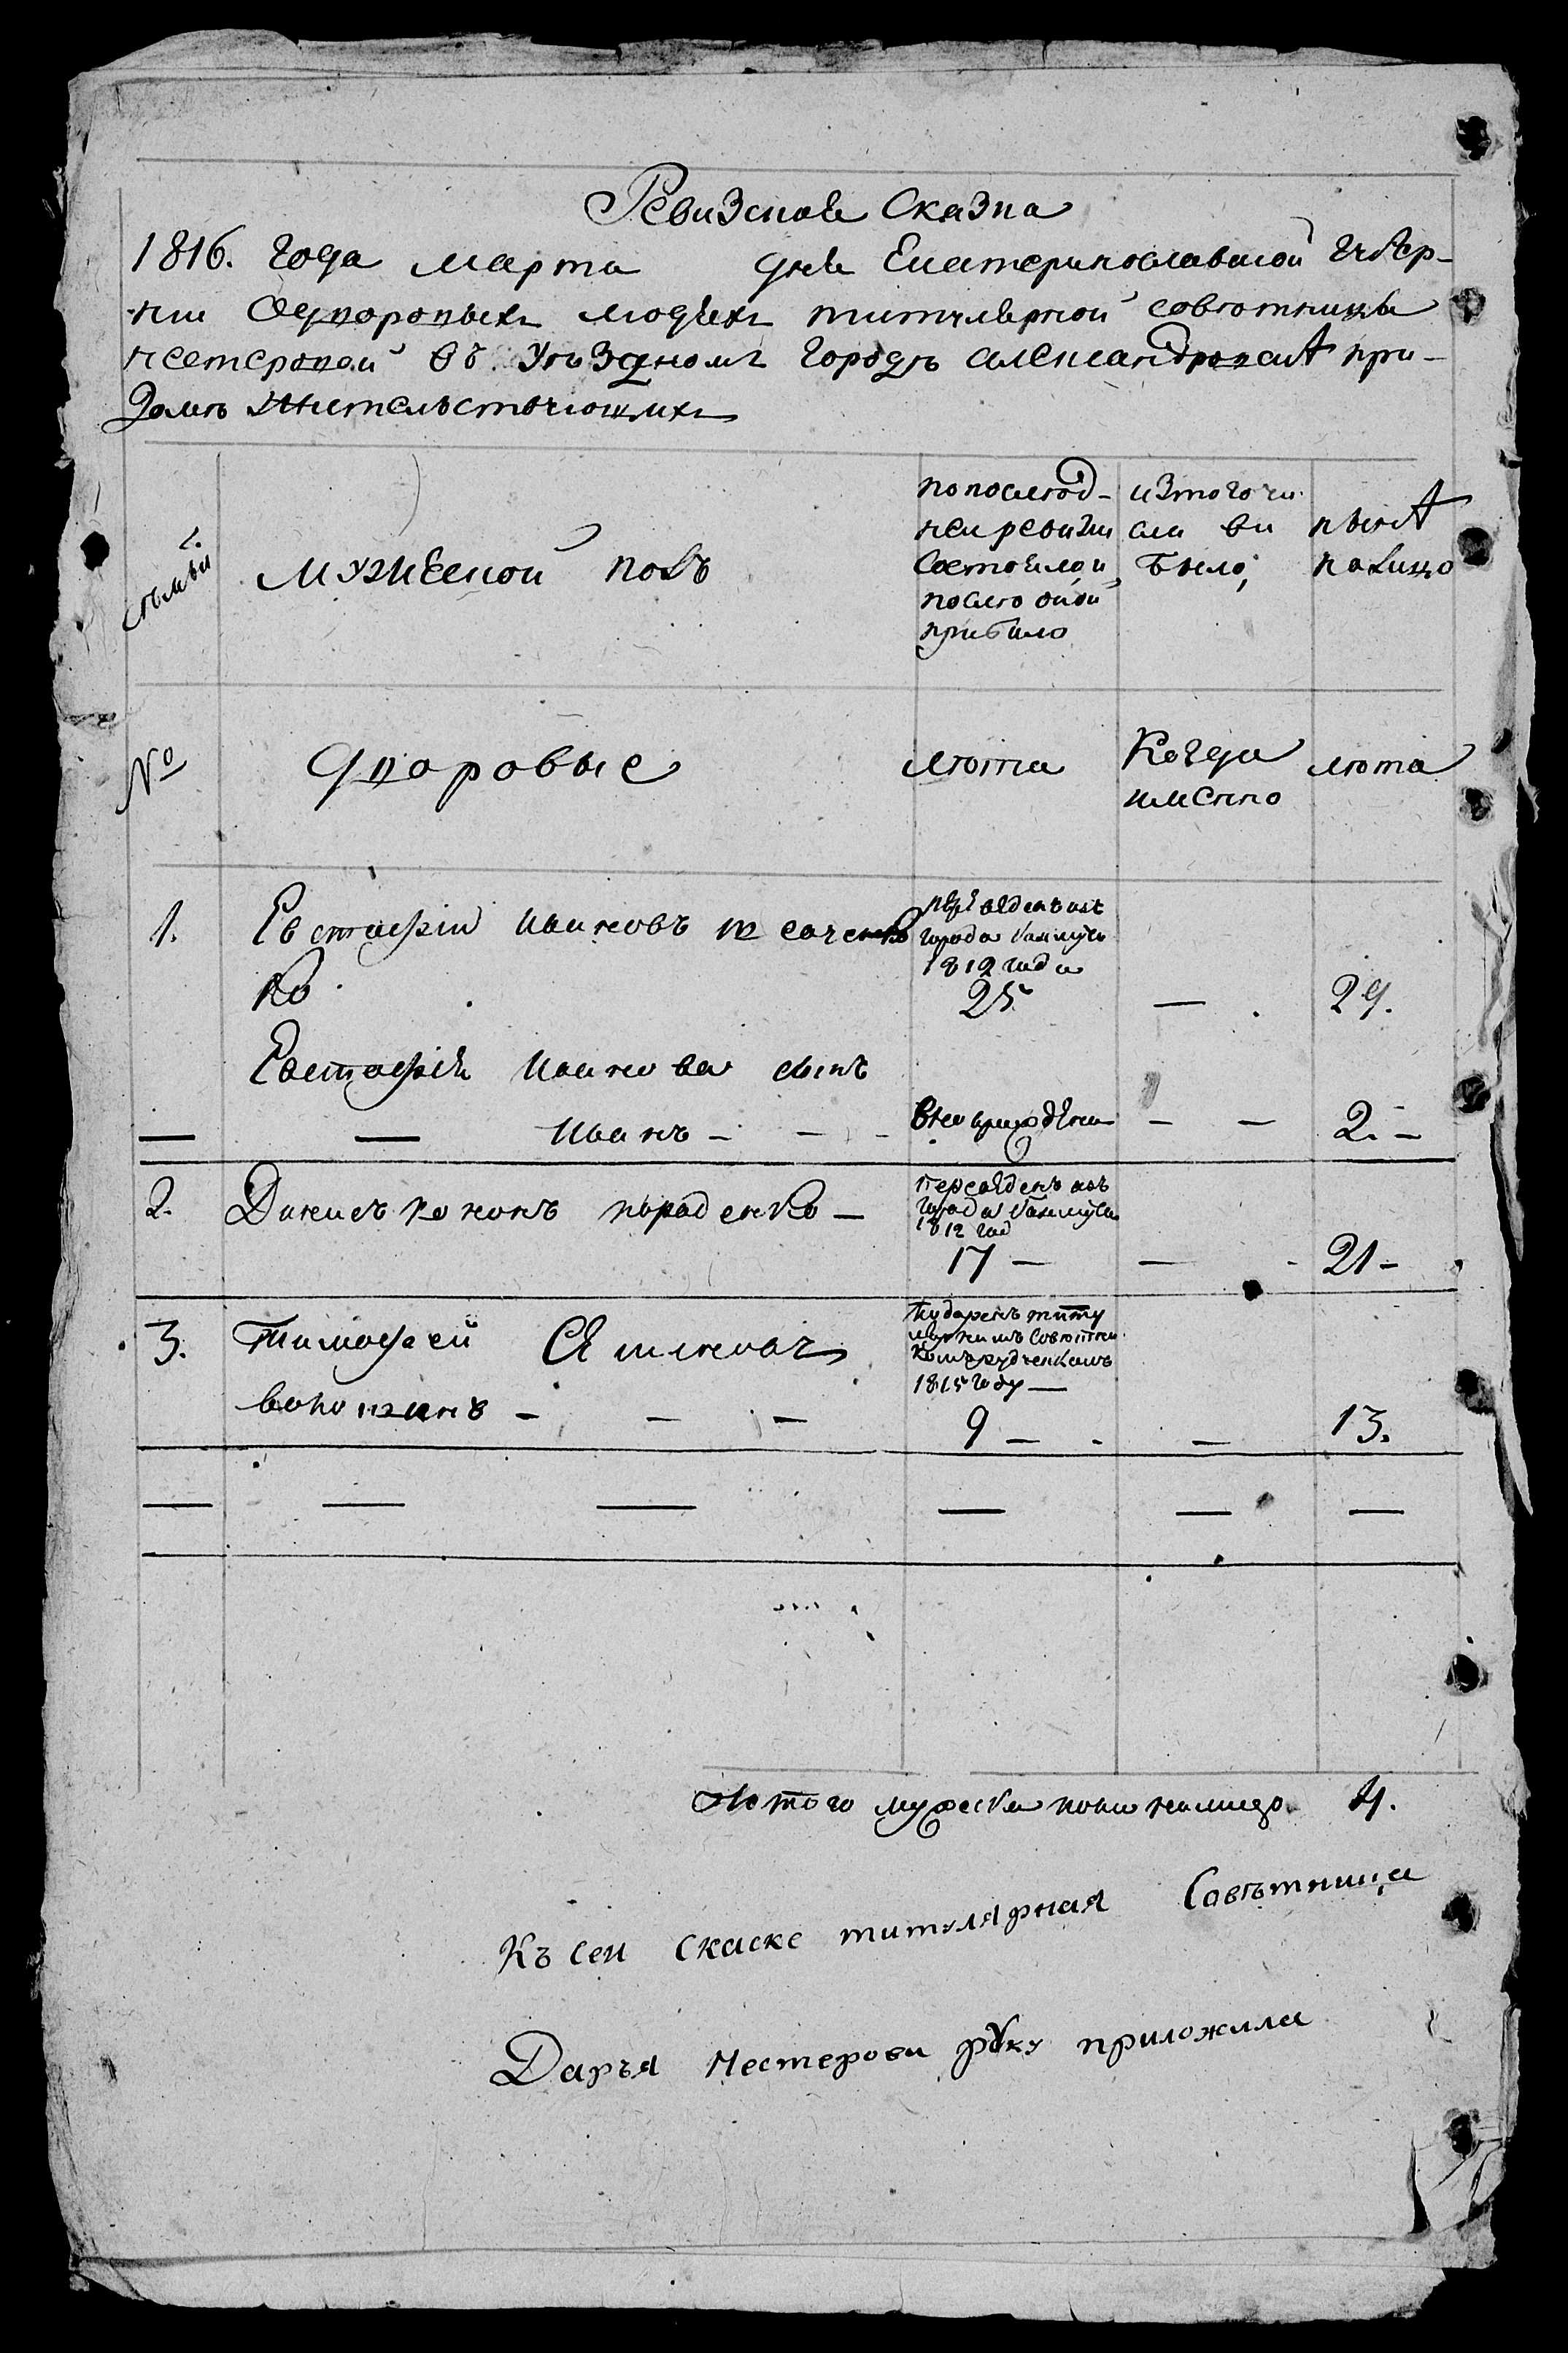 Ревизская Сказка
1816. года марта дня Екатеринославской губер-
нии О дворовыхъ людяхъ титулярной советницы
нестеровой въ уѣздномъ городѣ александровскѣ при-
домѣ жительствующихъ
семьи
мужеской полъ
по послѣд-
ней ревизии
состояло и
послѣ оной
прибыло
изтого чи
сла вы
было,
нынѣ
налицо
№
дворовые
лѣта
Когда
имянно
лѣта
1. Евстафiй ивановъ ткаченко
ко
переведенъ изъ
города
1812 года
25 — 29.
Евстафiя иванова сынъ
— — иванъ — — вновьрожденъ — — 2. —
2. Денисъ кононъ —
переведенъ изъ
города
1812 год
17 — — 21 —
3. Тимофей Семеновъ
— — —
подаренъ титу
лярнымъ советни
комъ
1815 году —
9 — — 13.
— — — — — —
Итого мужеска пола налицо. 4.
Къ сеи скаске титулярная Советница
Дарья Нестерова руку приложила